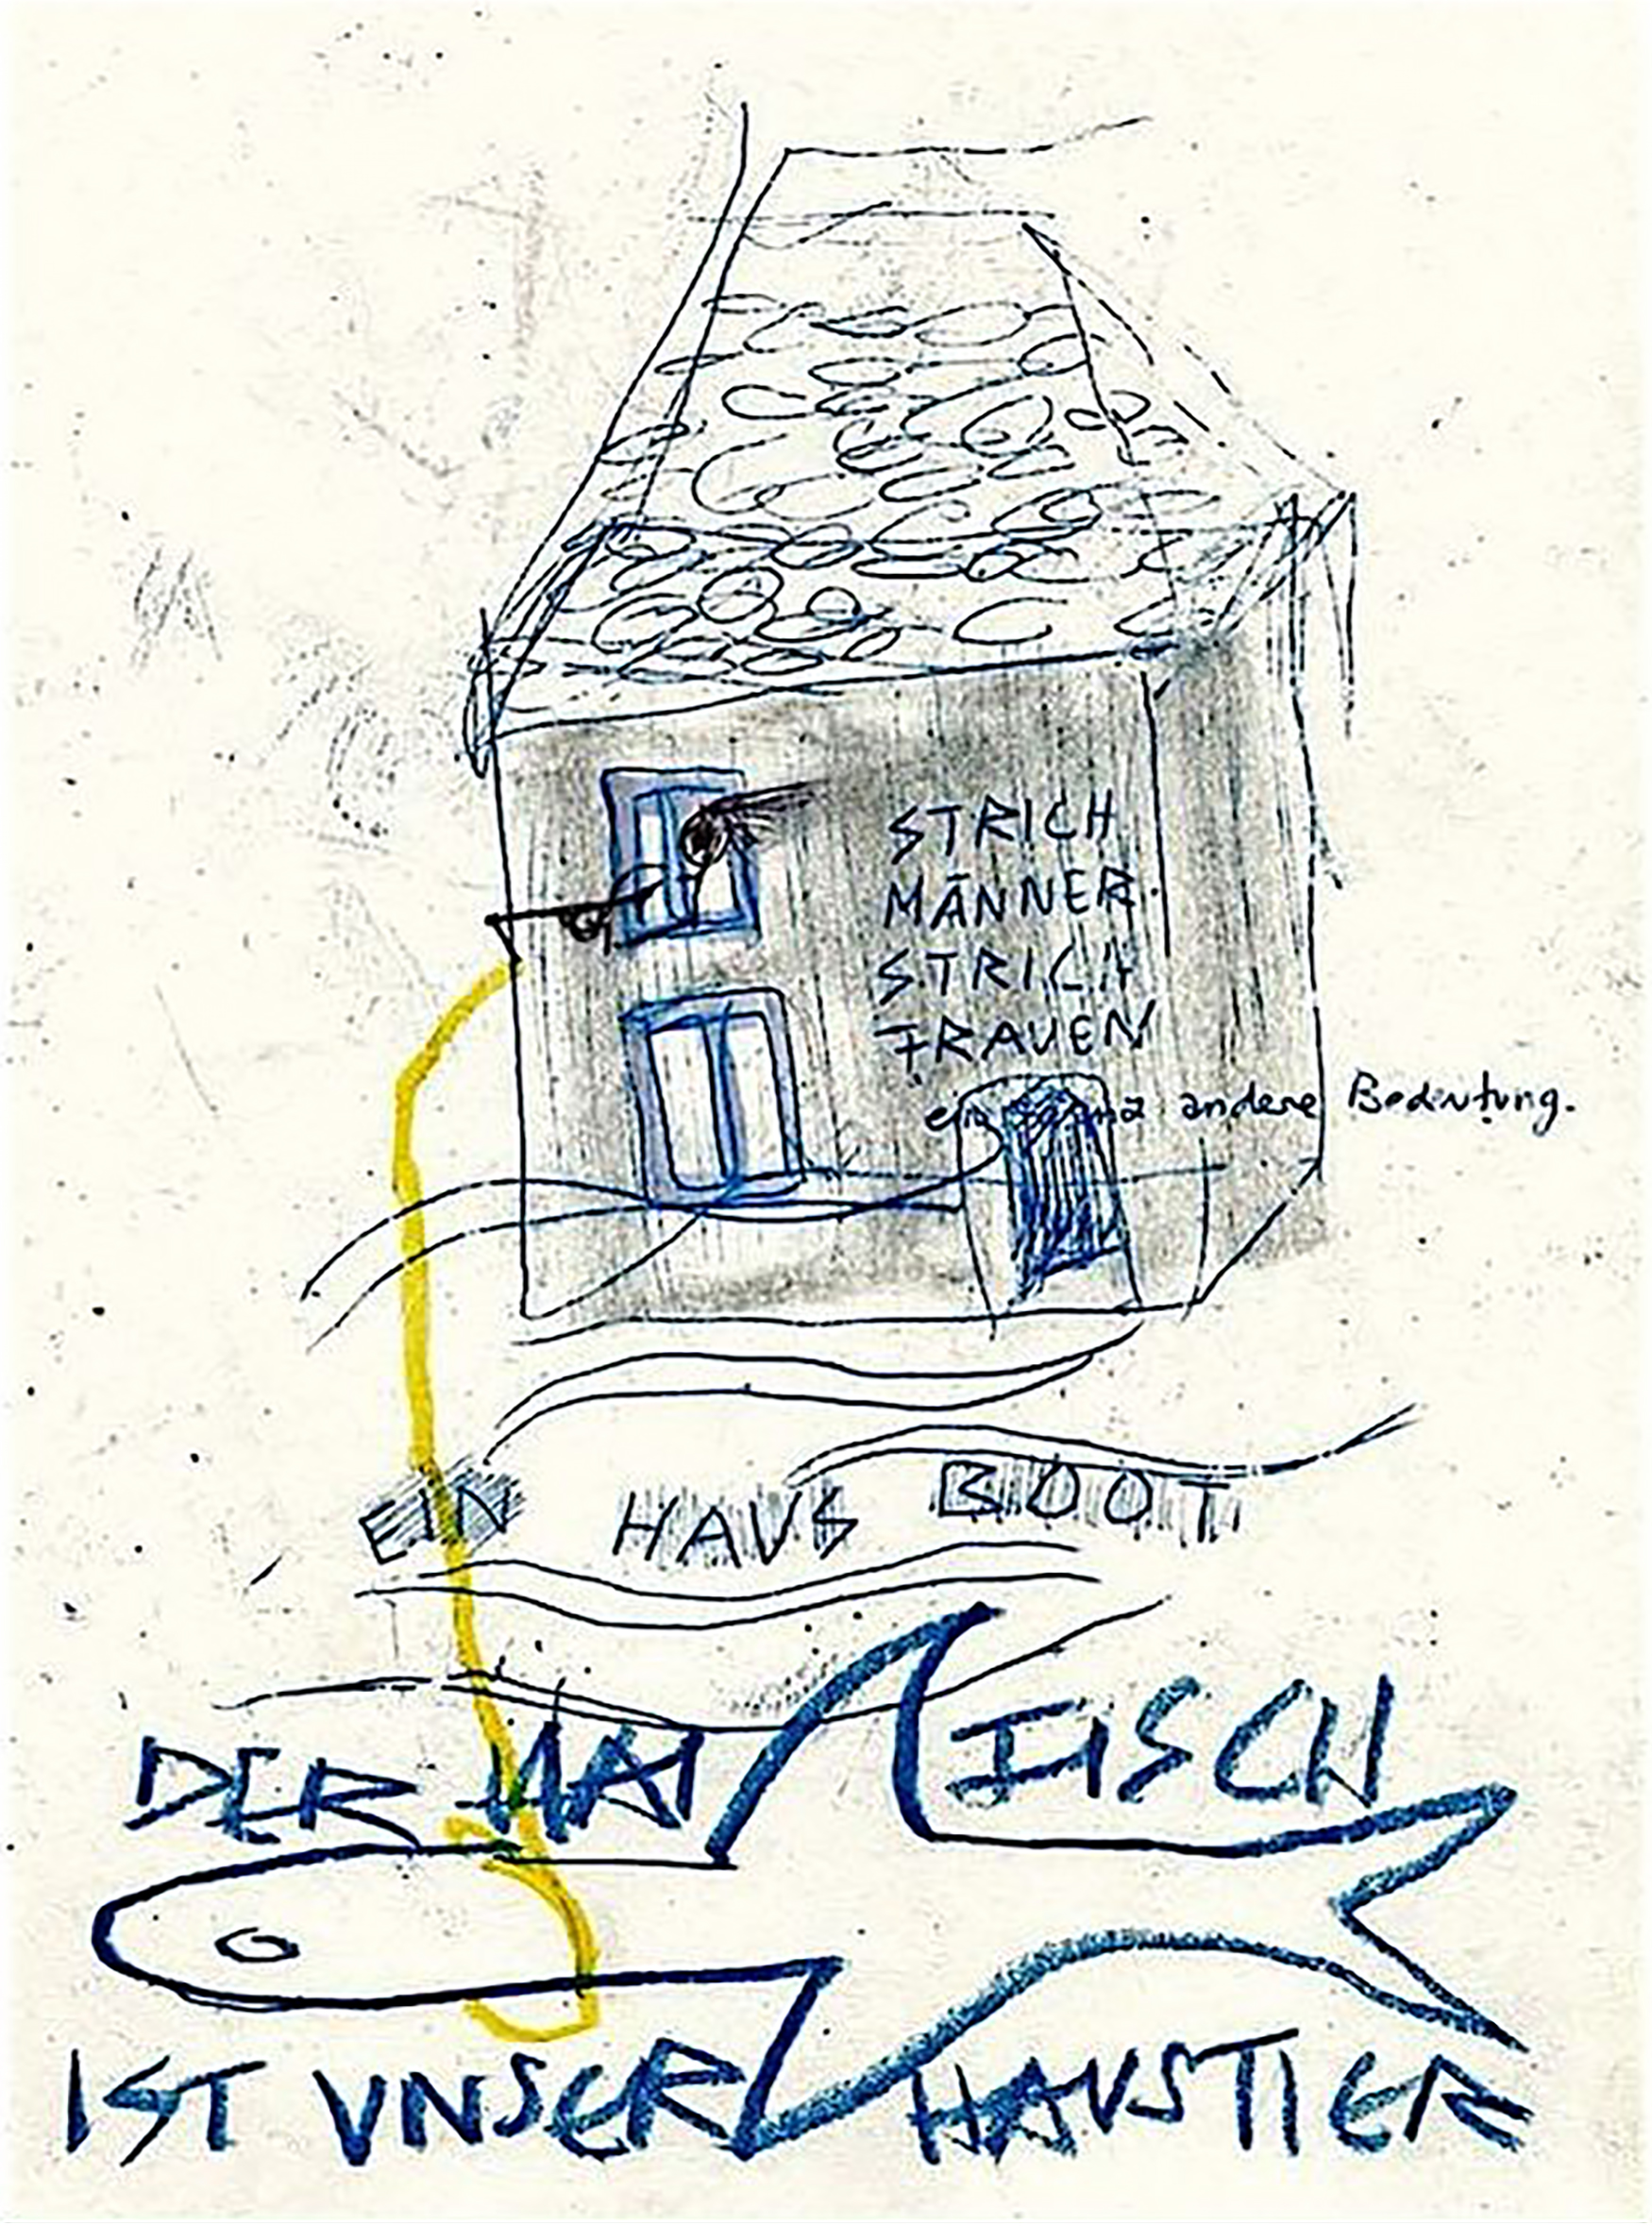 STRICH
MÄNNER
STRICH
FRAUEN
eine andere Bedeutung.
EIN HAUS BOOT
DER HAI FISCH
IST UNSER HAUSTIER